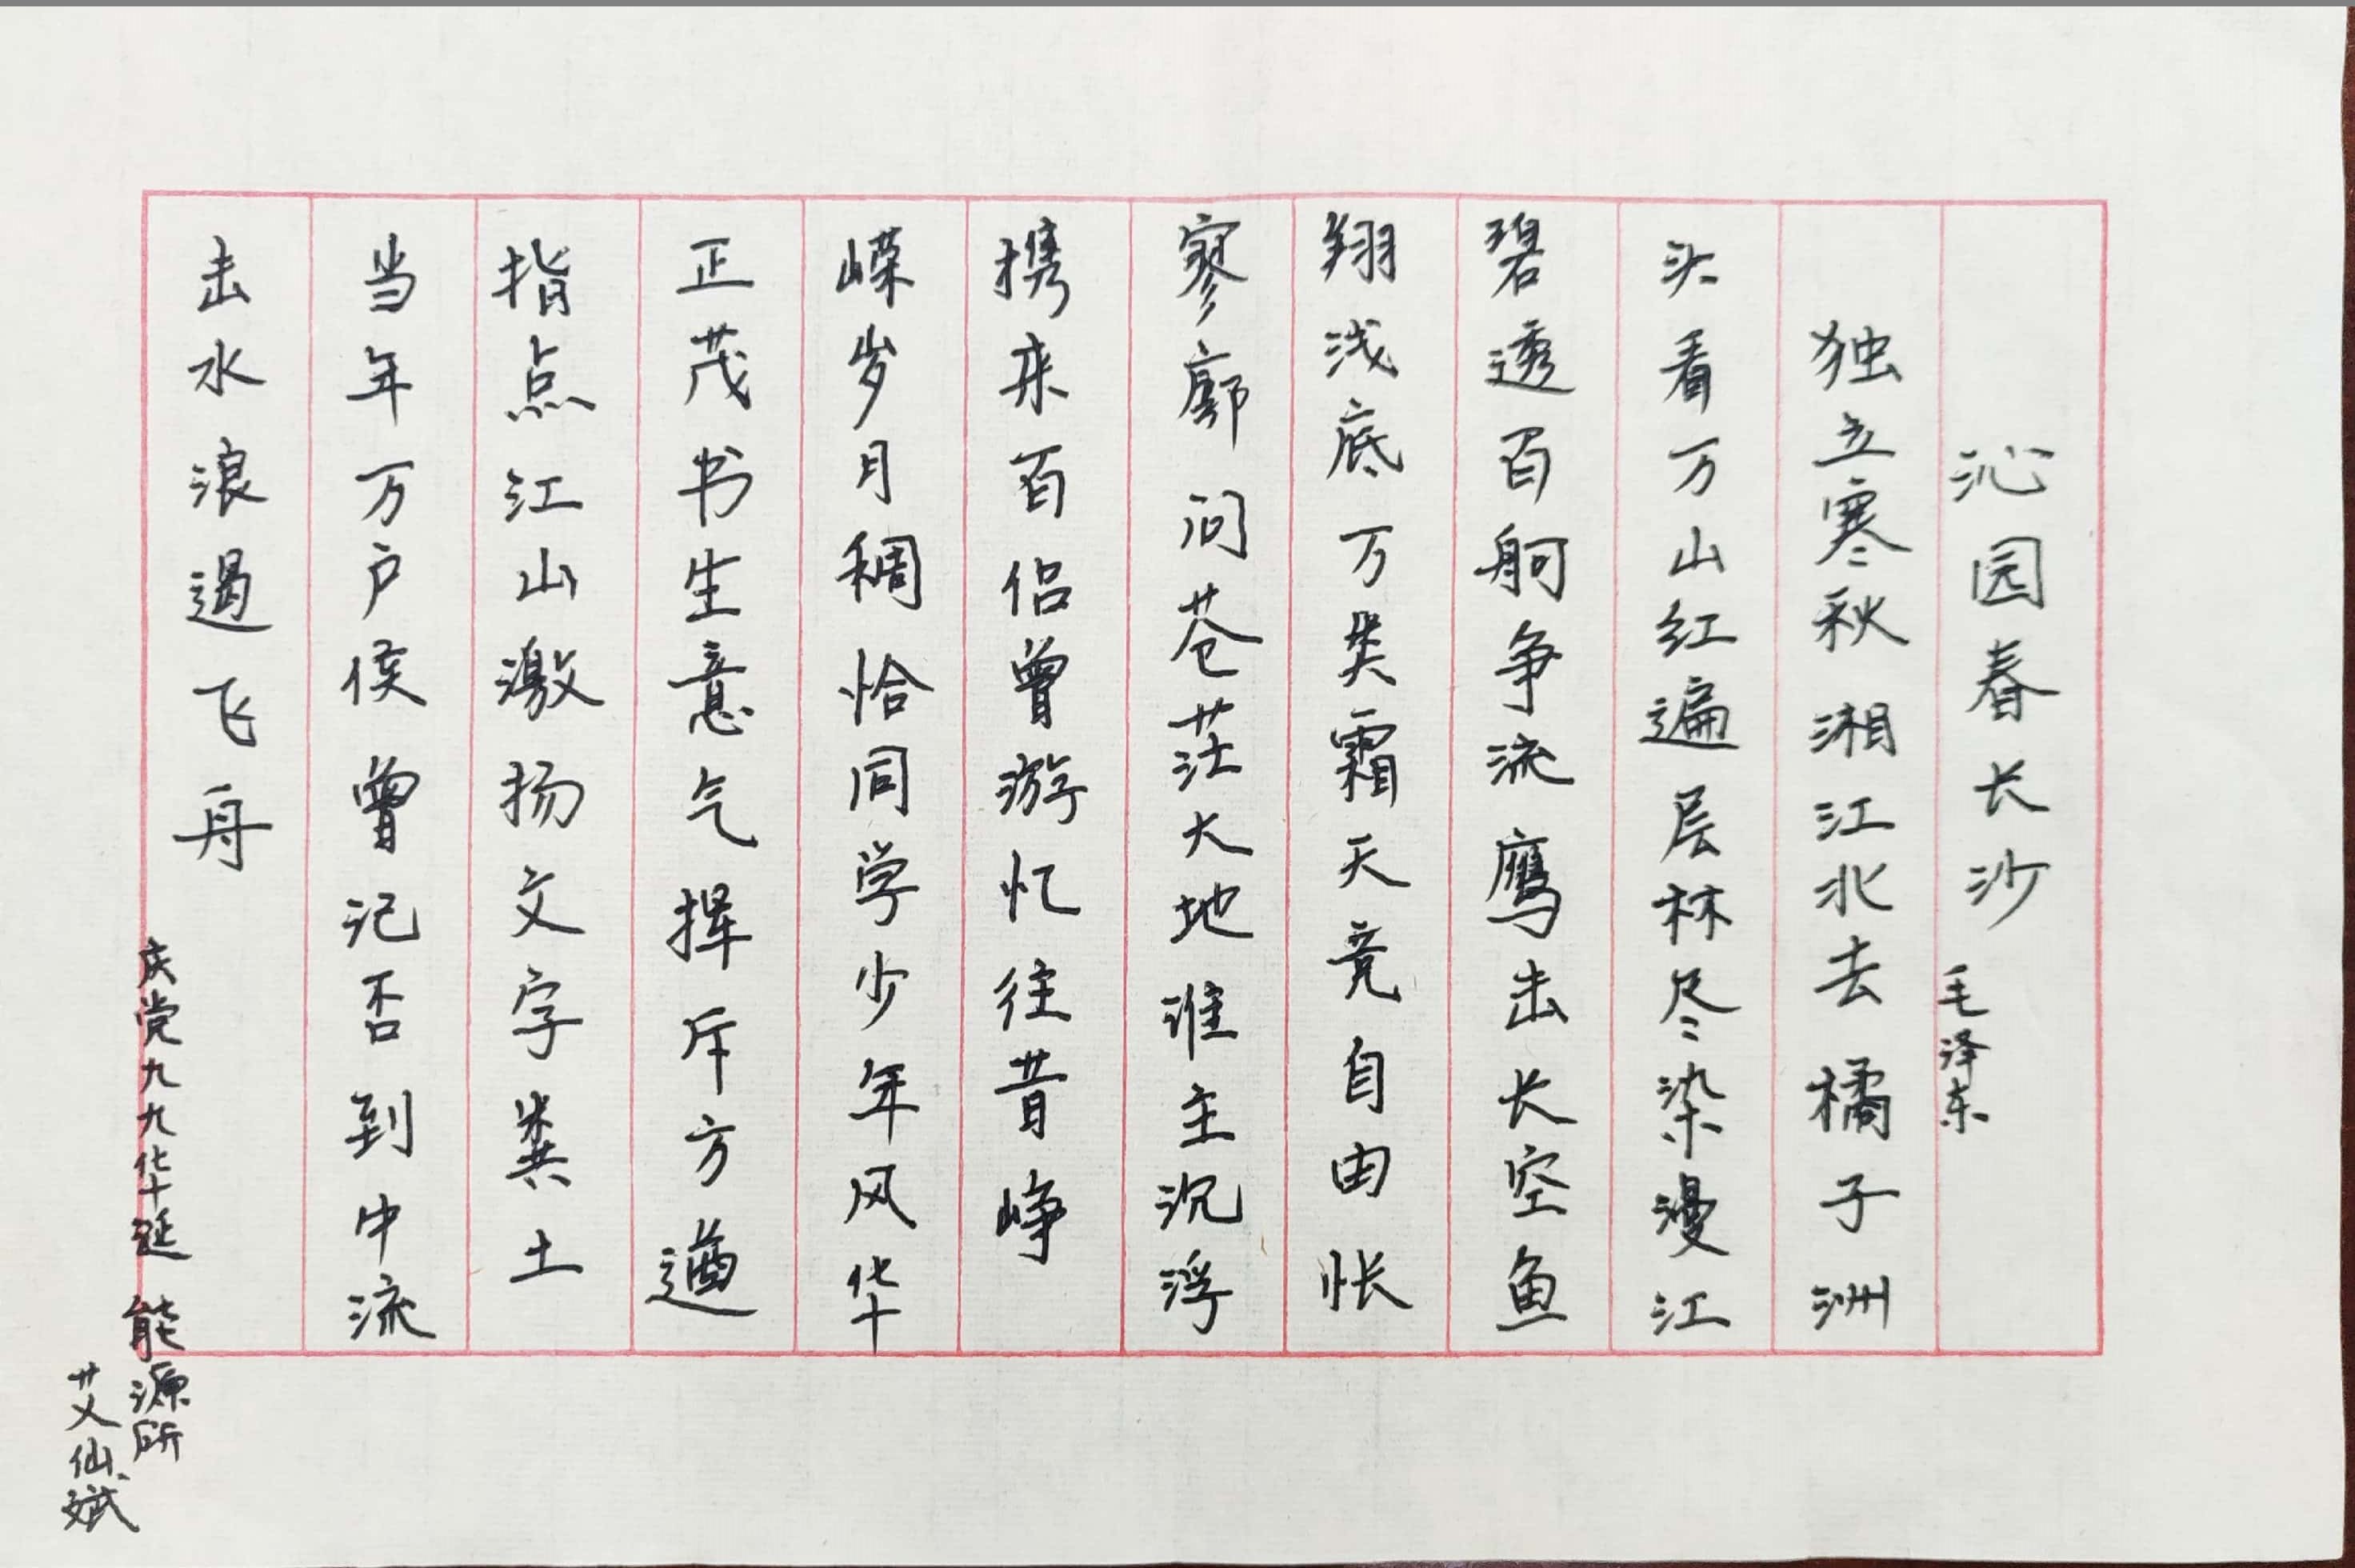 沁园春长沙 毛泽东
独立寒秋湘江北去橘子洲
头看万山红遍层林尽染漫江
碧透百舸争流鹰击长空鱼
翔浅底万类霜天竞自由怅
寥廓问苍茫大地谁主沉浮
携来百侣曾游忆往昔峥
嵘岁月稠恰同学少年风华
正茂书生意气挥斥方遒
指点江山激扬文字粪土
当年万户侯曾记否到中流
击水浪遏飞舟
庆党九九华诞 能源所
艾仙斌